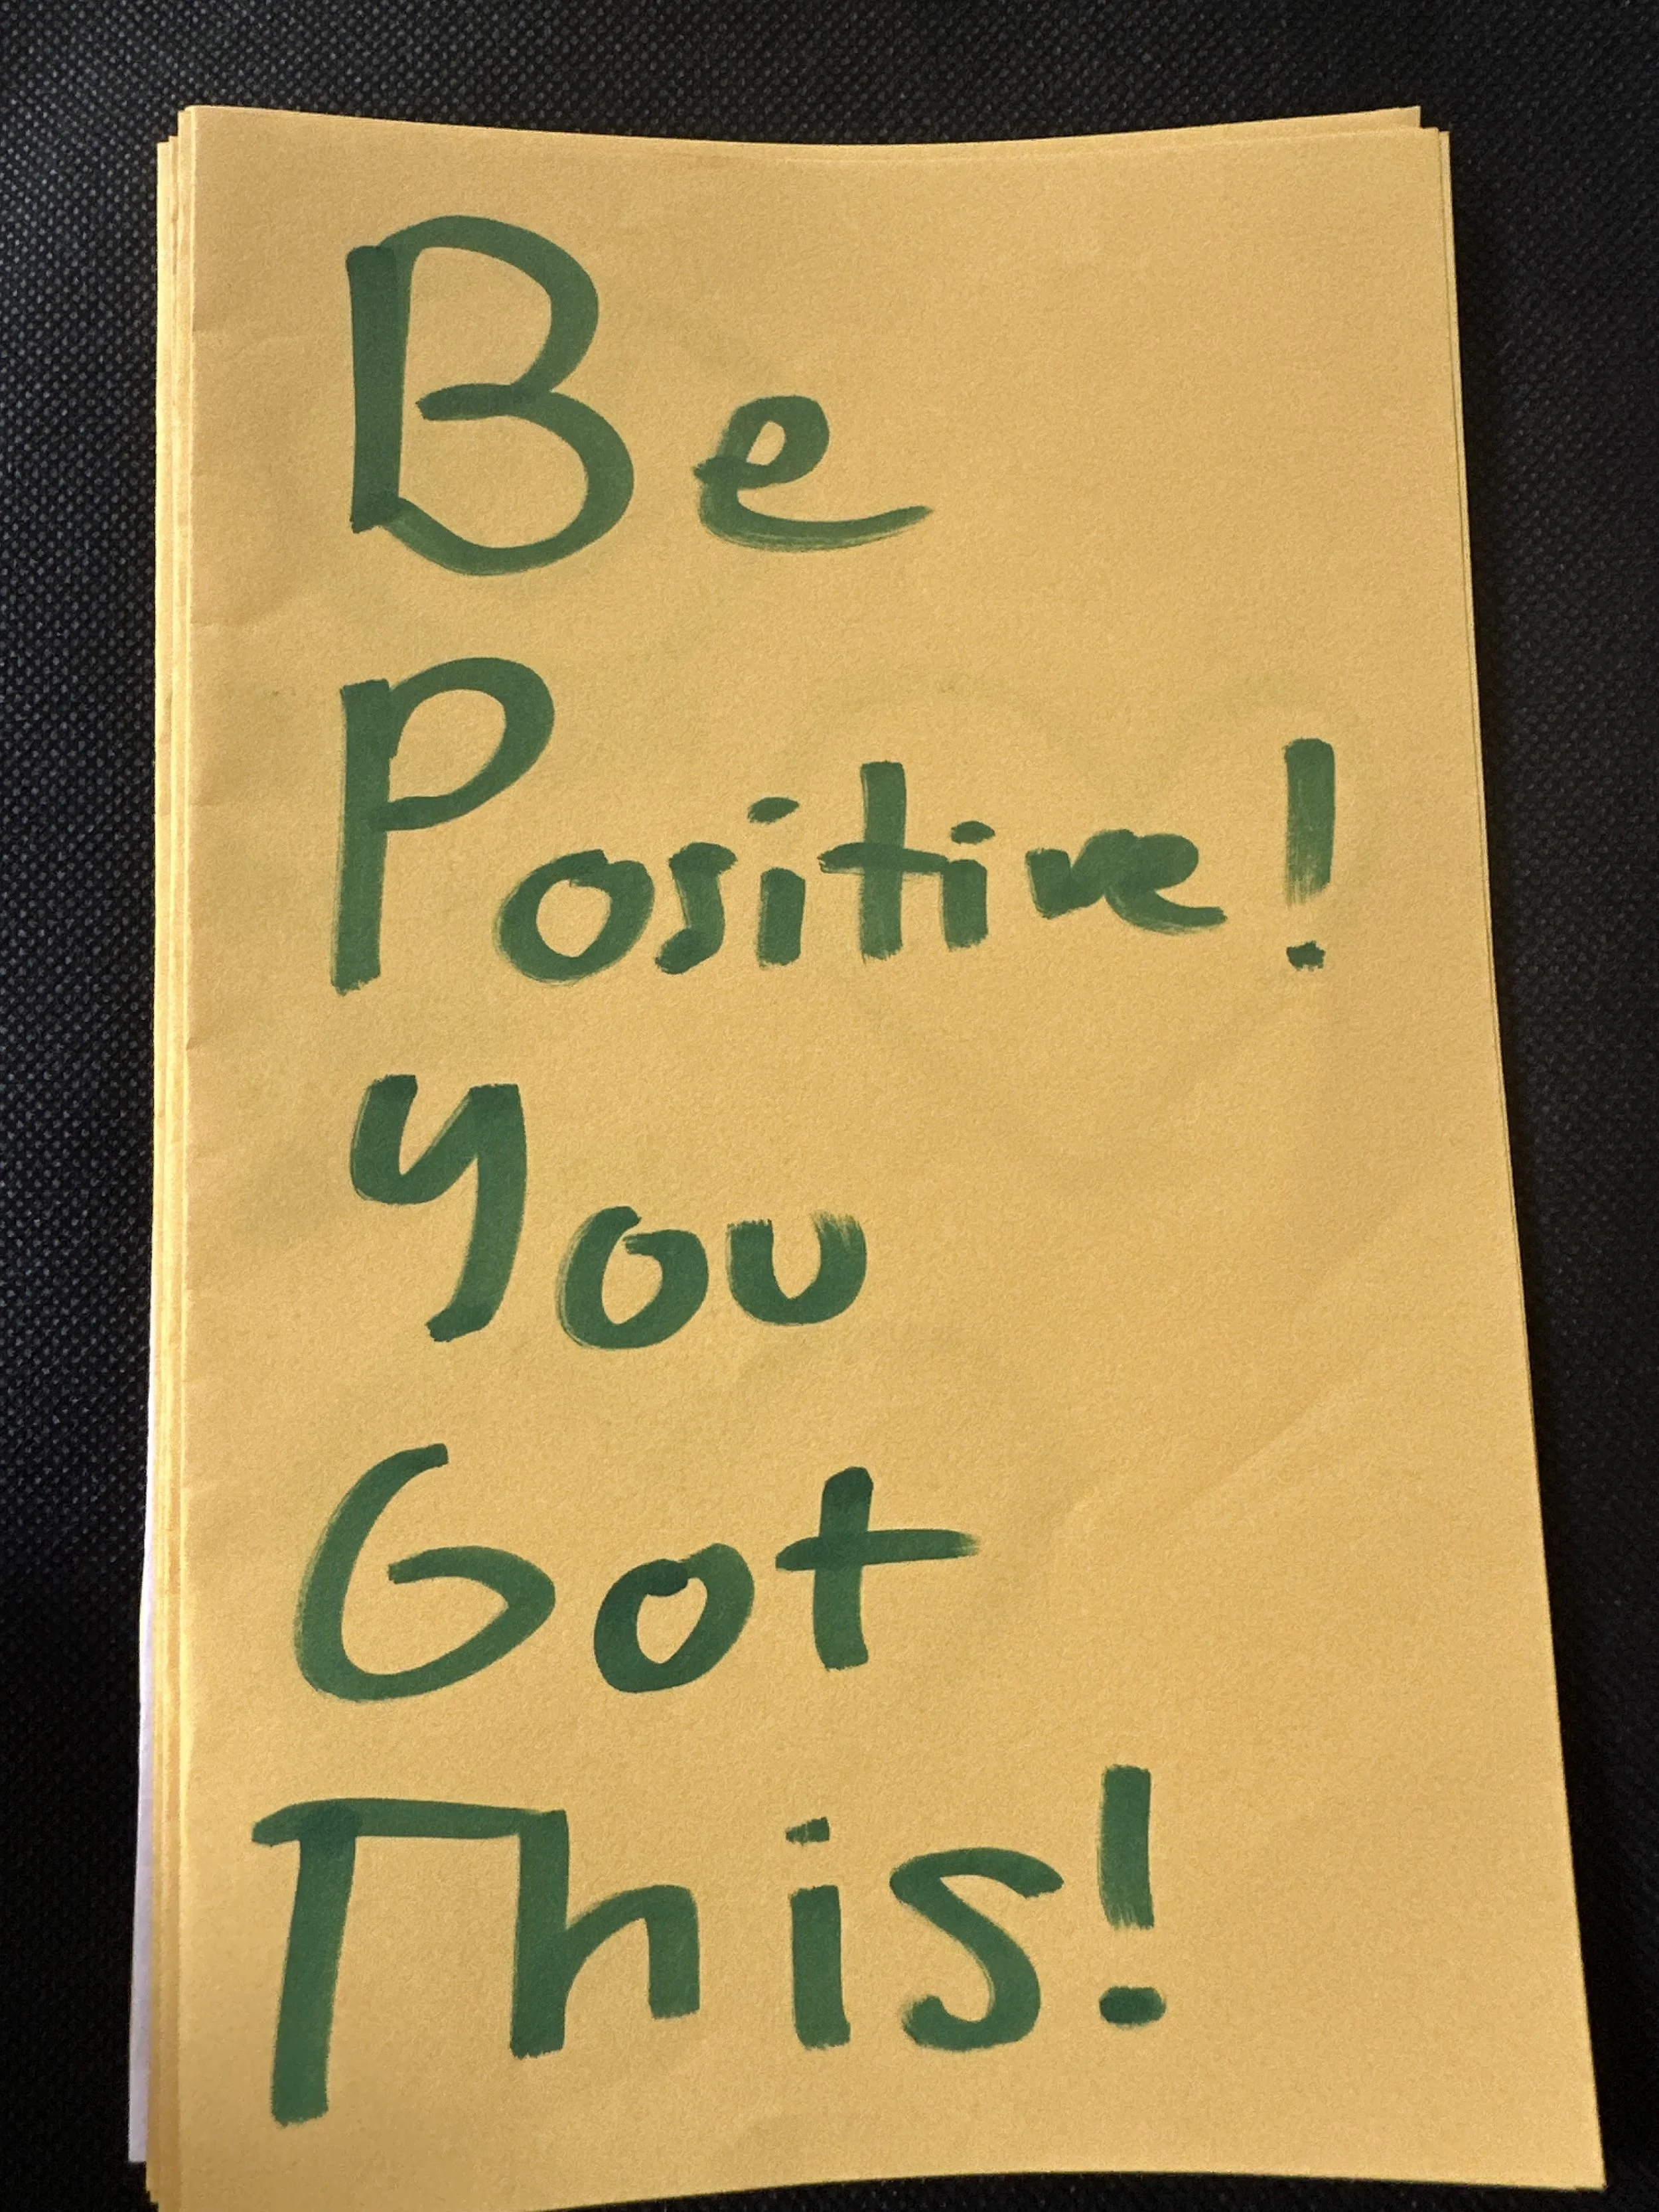 Be
Positive!
You
Got
This!